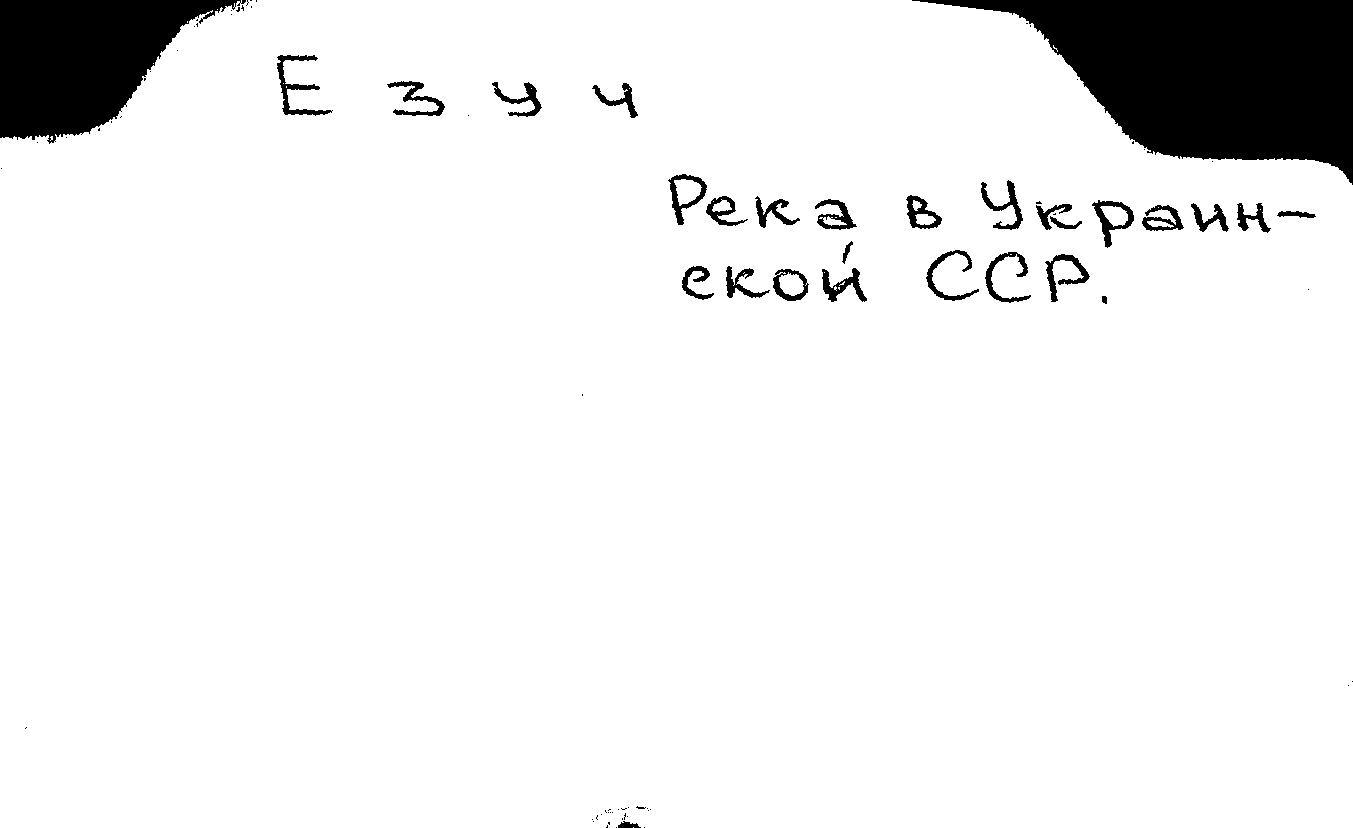 Езуч
Река в Украин-
ской ССР.